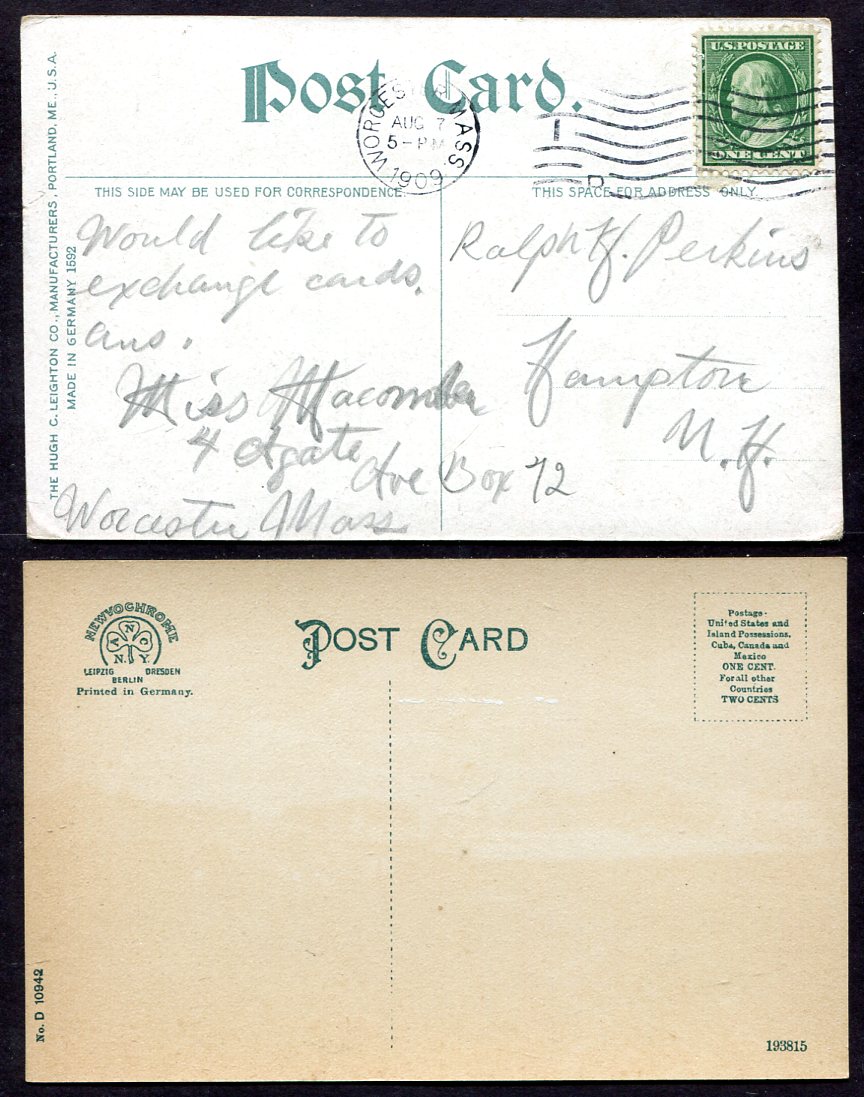 Post Card.
U.S. POSTAGE
ONE CENT
WORCESTER MASS.
AUG 7
5-PM
1909
THIS SIDE MAY BE USED FOR CORRESPONDENCE
THIS SPACE FOR ADDRESS ONLY
THE HUGH C. LEIGHTON CO., MANUFACTURERS, PORTLAND, ME., U.S.A.
MADE IN GERMANY 1592
Would like to
exchange cards.
ans.
Miss Macomber
4 Agate
Ave Box 72
Worcester Mass
Ralph H. Perkins
Hampton
N.H.
NEWVOCHROME
A N C
N.Y.
LEIPZIG DRESDEN
BERLIN
Printed in Germany.
POST CARD
Postage-
United States and
Island Possessions,
Cuba, Canada and
Mexico
ONE CENT.
For all other
Countries
TWO CENTS
No. D 10942
193815